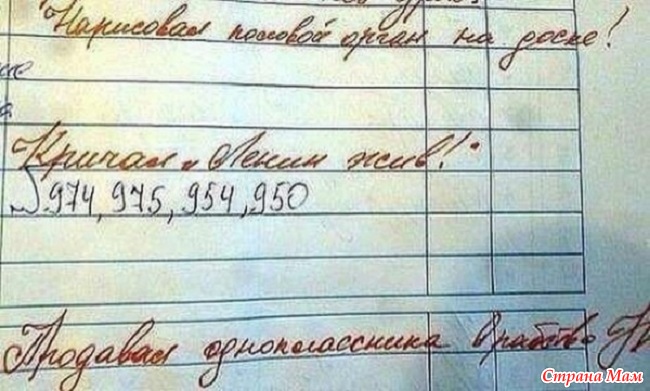 Нарисовал половой орган на доске!
Кричал „Ленин жив!"
974, 975, 954, 950
Продавал одноклассника в рабство
Страна Мам